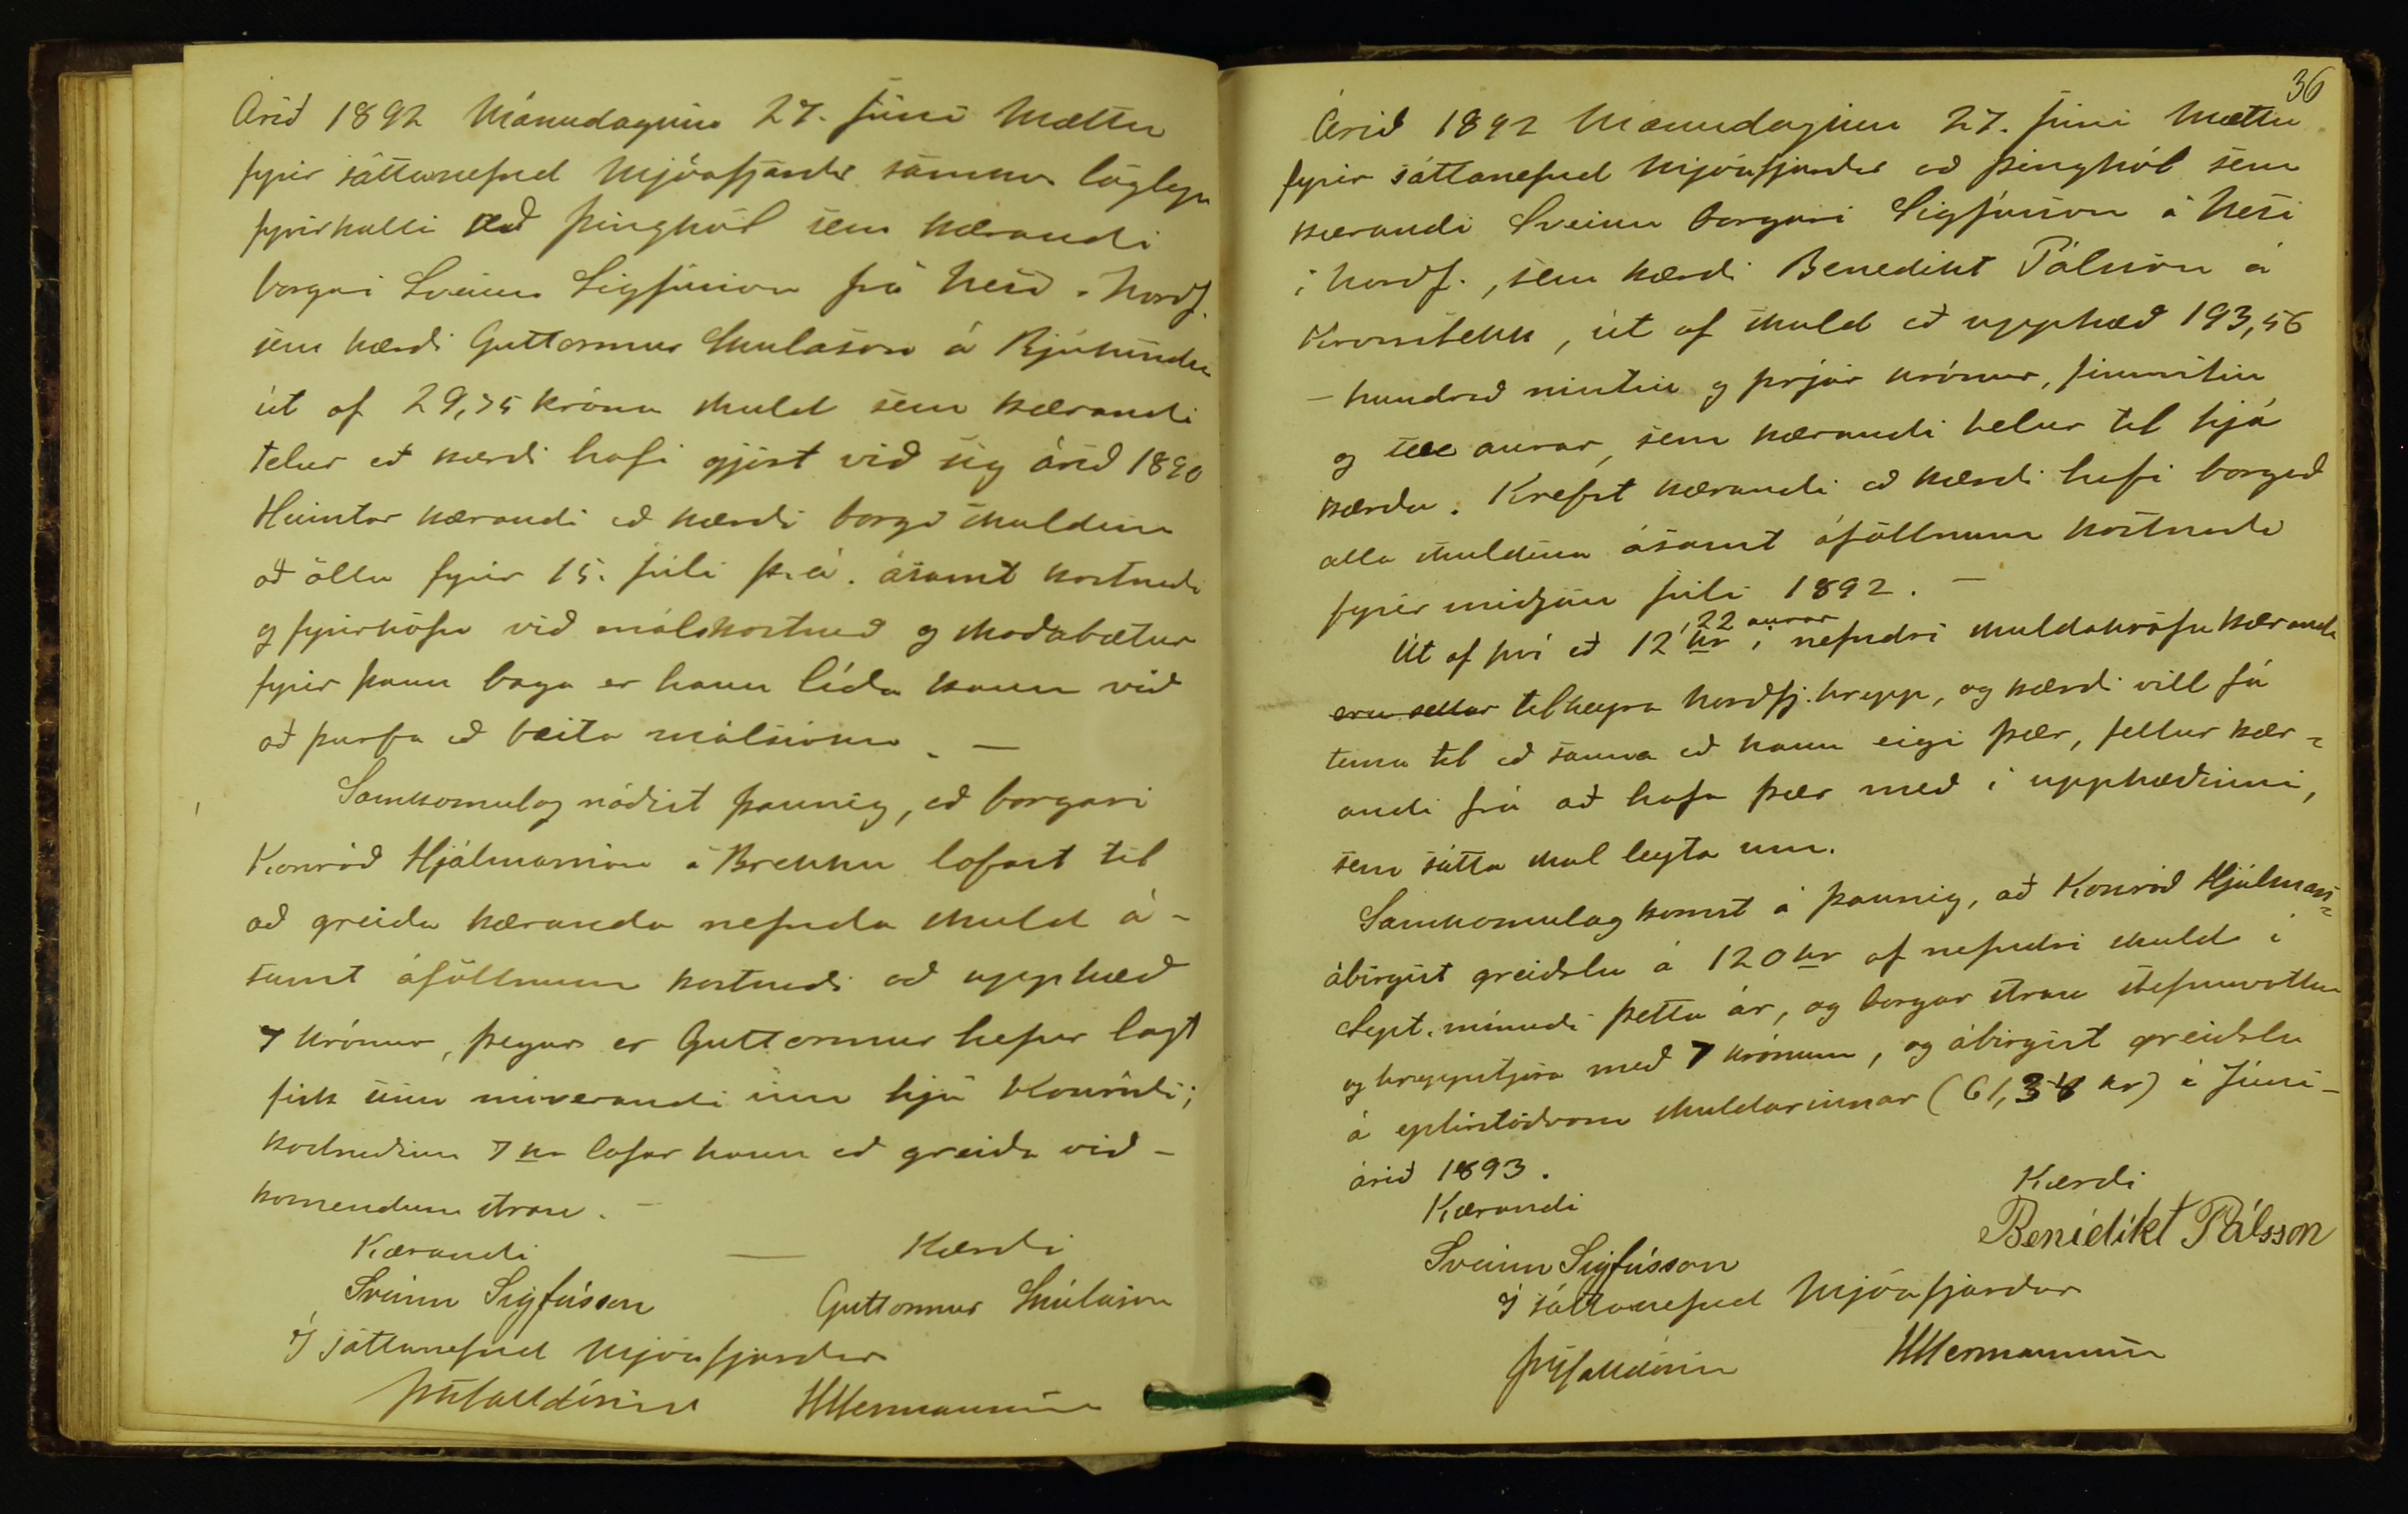 Árið 1892 Mánudaginn 27. Júní Mættu
fyrir sáttanefnd Mjóafjarðar samkv. löglegu
fyrirkalli að Þinghól sem kærandi
borgari Sveinn Sigfússon frá Nesi í Norðf.
sem kærði Guttormur Skúlason á
út af 29,75 króna skuld sem kærandi
telur að kærði hafi gjört við sig árið 1890
Heimtar kærandi að kærði borgi skuldina
að öllu fyrir 15. júlí þ.á. ásamt kostnaði
og fyrirhöfn við málskostnað og skaðabætur
fyrir þann baga er hann líða kann við
að þurfa að beita málsókn. —
Samkomulag náðist þannig, að borgari
Konráð Hjálmarsson á Brekku lofast til
að greiða kæranda nefnda skuld á-
samt áföllnum kostnaði að upphæð
7 krónur, þegar er Guttormur hefur lagt
fisk sinn núverandi inn hjá Konráði;
kostnaðinn 7 kr lofar hann að greiða við-
komendum strax. —
Kærandi — Kærði
Sveinn Sigfússon Guttormur Skúlason
Í sáttanefnd Mjóafjarðar
HHermannsson
36
Árið 1892 Mánudaginn 27. Júní Mættu
fyrir sáttanefnd Mjóafjarðar að Þinghól sem
kærandi Sveinn borgari Sigfússon á Nesi
í Norðf., sem kærði Benedikt Pálsson á
Krossstekk, út af skuld að upphæð 193,56
— hundrað níutíu og þrjár krónur, fimmtíu
og sex aurar, sem kærandi telur til hjá
kærða. Krefst kærandi að kærði hafi borgað
alla skuldina ásamt áföllnum kostnaði
fyrir miðjan júlí 1892. —
Út af því að 12 kr, 22 aurar í nefndri skuldakröfu kæranda
eru settar tilheyra Norðfj.hrepp, og kærði vill fá
tíma til að sanna að hann eigi þær, fellur kær=
andi frá að hafa þær með í upphæðinni,
sem sátta skal leyta um.
Samkomulag komst á þannig, að Konráð Hjálmars=
ábirgist greiðslu á 120 kr af nefndri skuld í
Sept. mánuði þetta ár, og borgar strax stefnuvottum
og hreppstjóra með 7 krónum, og ábirgist greiðslu
á eptirstöðvum skuldarinnar (61,34 kr) í Júní-
árið 1893.
Kærandi Kærði
Sveinn Sigfússon Benidikt Pálsson
Í sáttanefnd Mjóafjarðar
HHermannsson